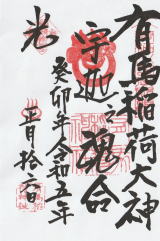 有馬稲荷大神
宇迦之魂命
癸卯年令和五年
正月拾六日